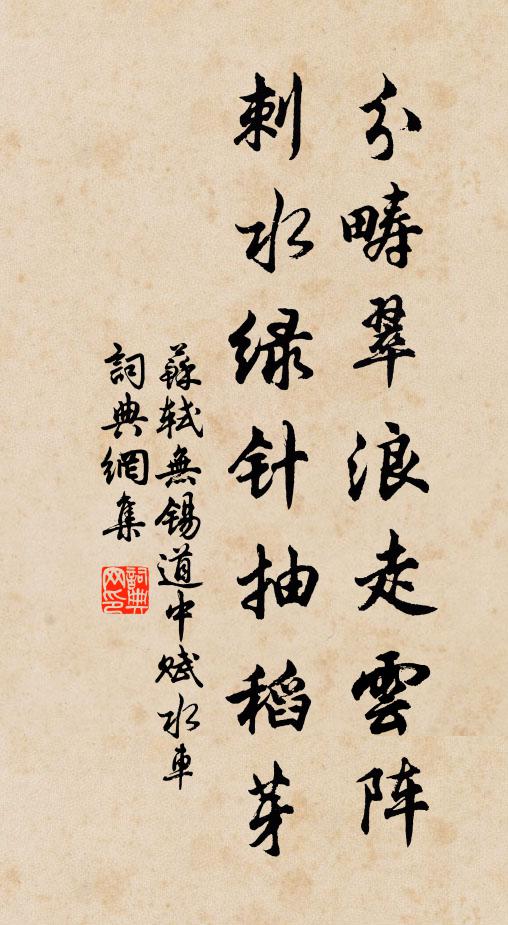 分畴翠浪走雲阵
刺水绿针抽稻芽
蘇轼無锡道中赋水車
詞典網集
詞典网印